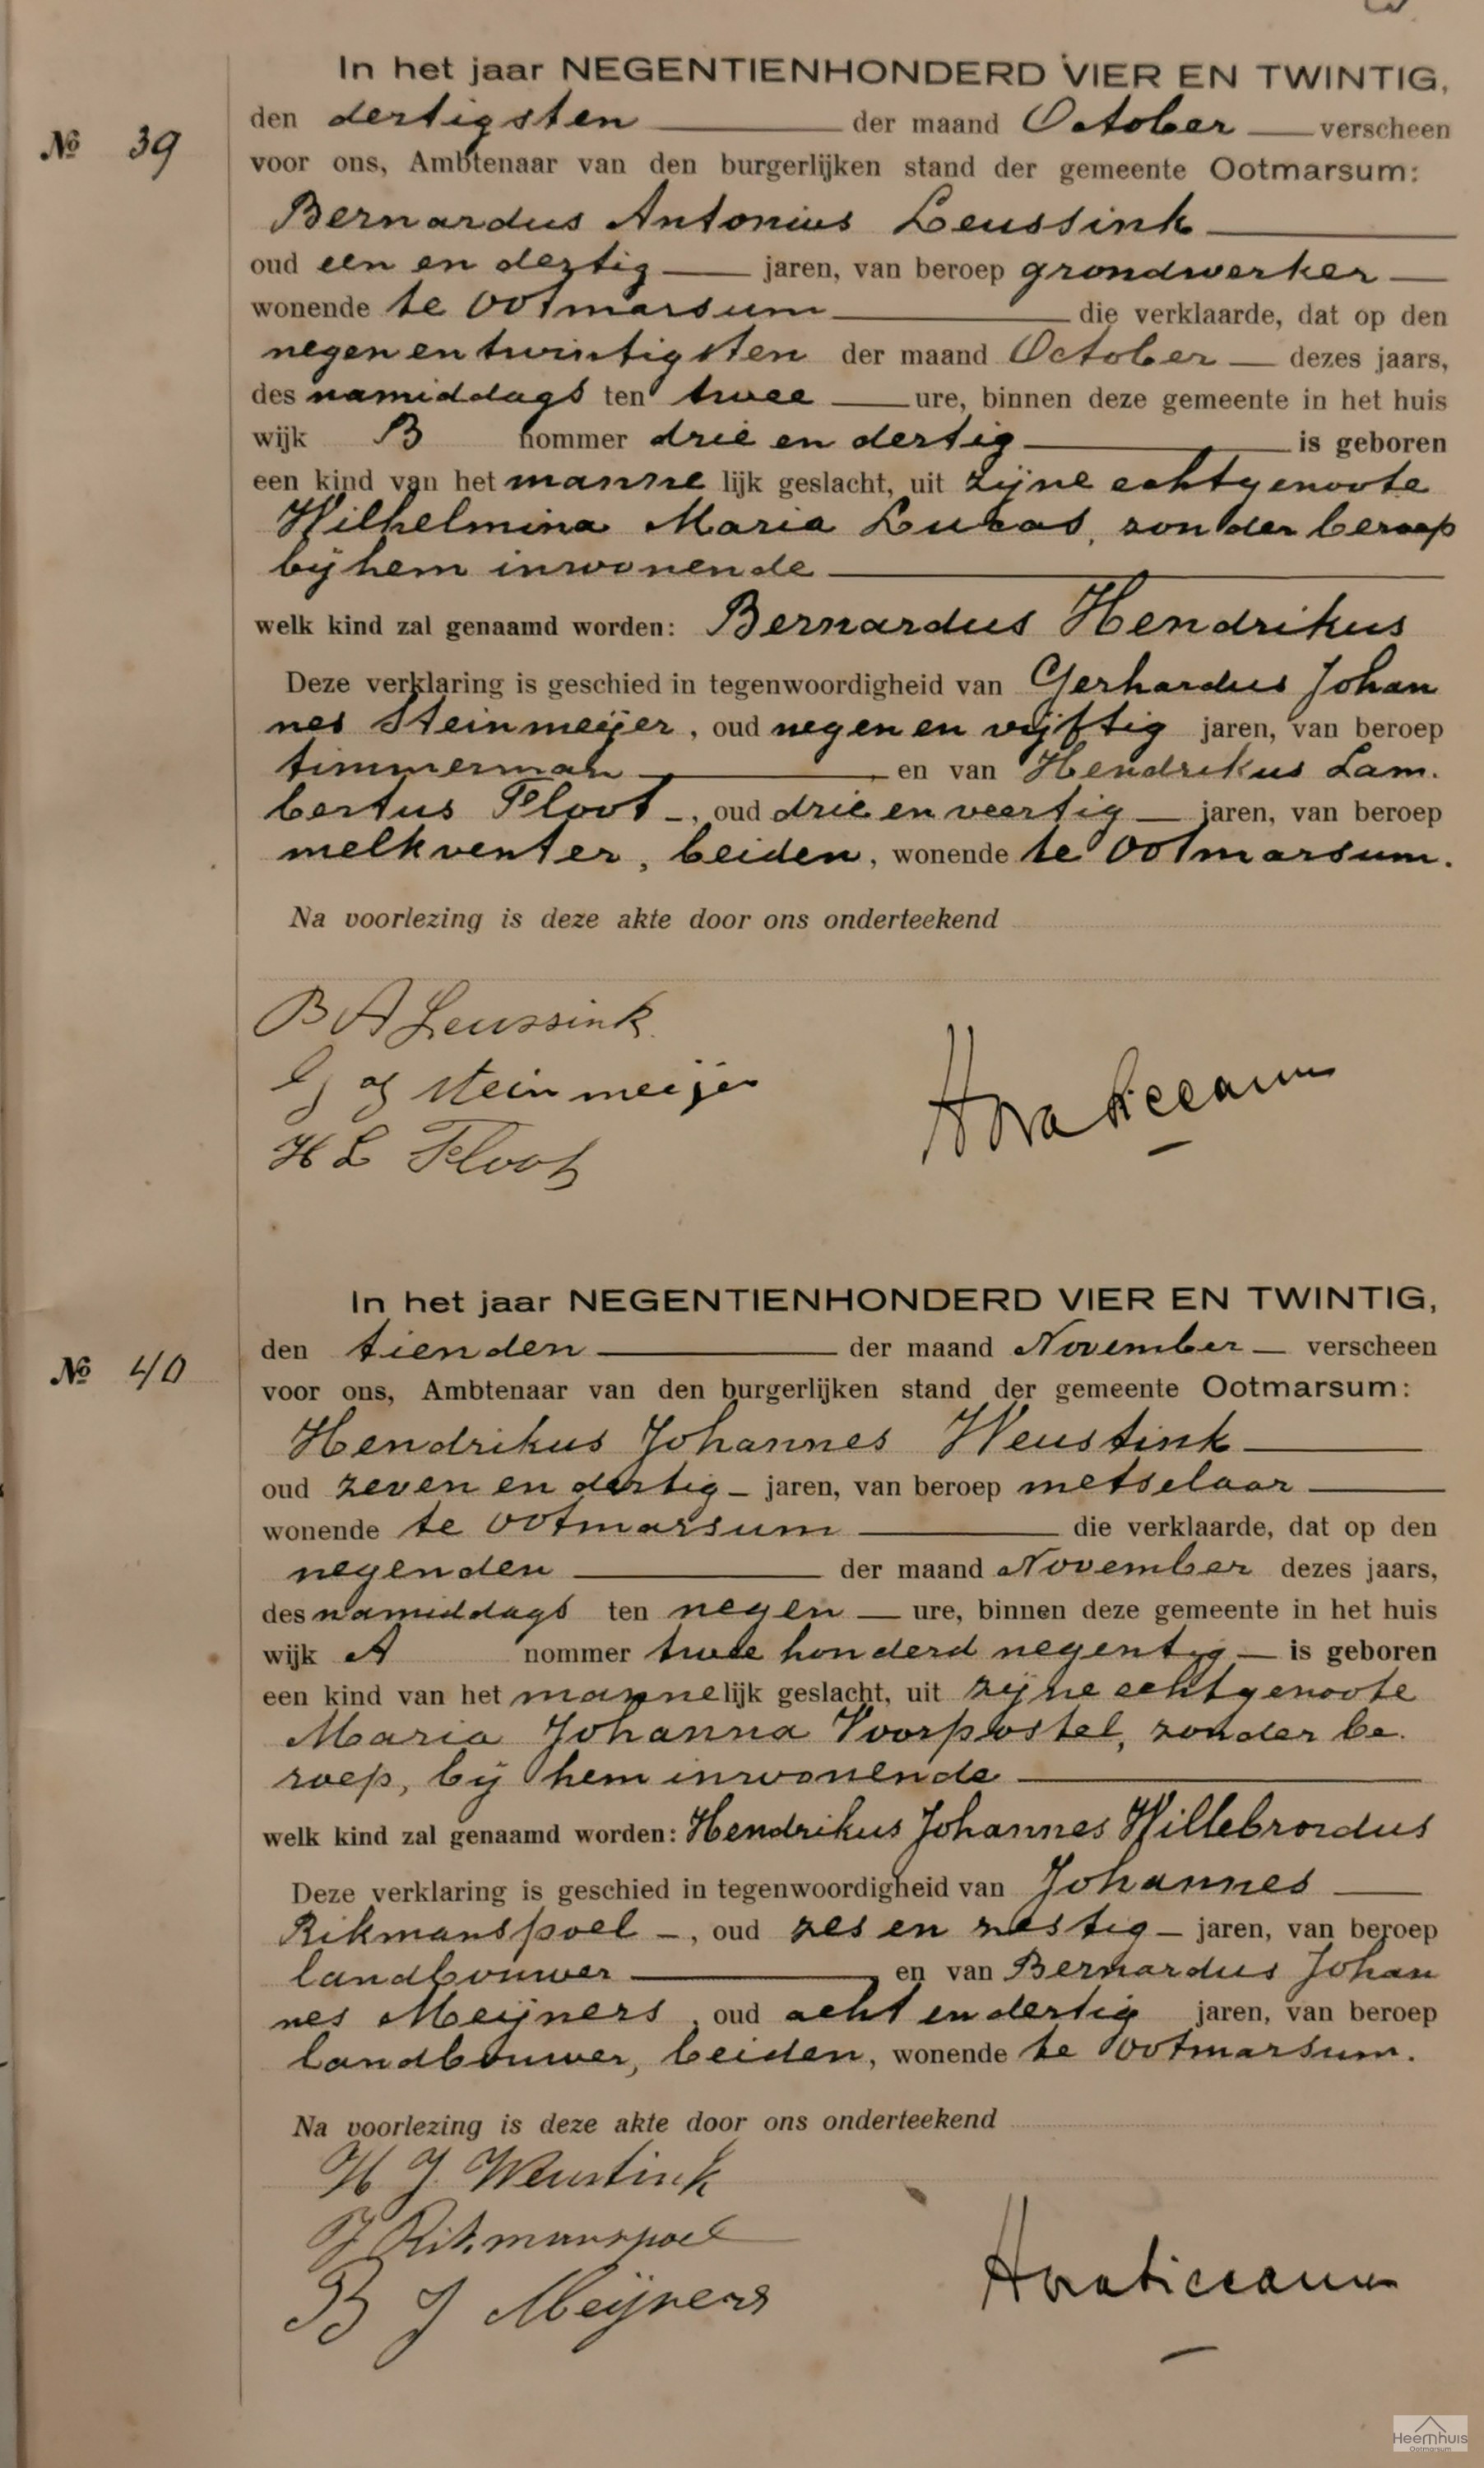 In het jaar NEGENTIENHONDERD VIER EN TWINTIG,
den dertigsten der maand October verscheen
No 39
voor ons, Ambtenaar van den burgerlijken stand der gemeente Ootmarsum:
Bernardus Antonius Leussink
oud een en dertig jaren, van beroep grondwerker
wonende te Ootmarsum die verklaarde, dat op den
negen en twintigsten der maand October dezes jaars,
des namiddags ten twee ure, binnen deze gemeente in het huis
wijk B nommer drie en dertig is geboren
een kind van het mannelijk geslacht, uit zijne echtgenoote
Wilhelmina Maria Lucas, zonder beroep
bij hem inwonende
welk kind zal genaamd worden: Bernardus Hendrikus
Deze verklaring is geschied in tegenwoordigheid van Gerhardus Johan
nes Steinmeijer, oud negen en vijftig jaren, van beroep
timmerman en van Hendrikus Lam.
bertus Floot -, oud drie en veertig jaren, van beroep
melkventer, beiden, wonende te Ootmarsum.
Na voorlezing is deze akte door ons onderteekend
B A Leussink
G J Steinmeijer
H L Floot
In het jaar NEGENTIENHONDERD VIER EN TWINTIG,
den tienden der maand November verscheen
No 40
voor ons, Ambtenaar van den burgerlijken stand der gemeente Ootmarsum:
Hendrikus Johannes Weustink
oud zeven en dertig jaren, van beroep metselaar
wonende te Ootmarsum die verklaarde, dat op den
negenden der maand November dezes jaars,
des namiddags ten negen ure, binnen deze gemeente in het huis
wijk A nommer twee honderd negentig is geboren
een kind van het mannelijk geslacht, uit zijne echtgenoote
Maria Johanna Voorpostel, zonder be.
roep, bij hem inwonende
welk kind zal genaamd worden: Hendrikus Johannes Willebrordus
Deze verklaring is geschied in tegenwoordigheid van Johannes
Rikmanspoel -, oud zes en zestig jaren, van beroep
landbouwer en van Bernardus Johan
nes Meijners, oud acht en dertig jaren, van beroep
landbouwer, beiden, wonende te Ootmarsum.
Na voorlezing is deze akte door ons onderteekend
H J Weustink
J Rikmanspoel
B J Meijners
Heemhuis
Ootmarsum